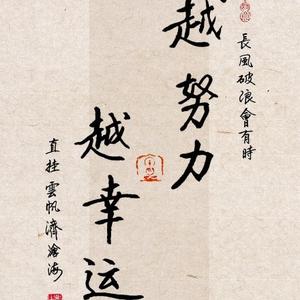 長風破浪會有時
越努力
越幸运
直挂雲帆濟滄海